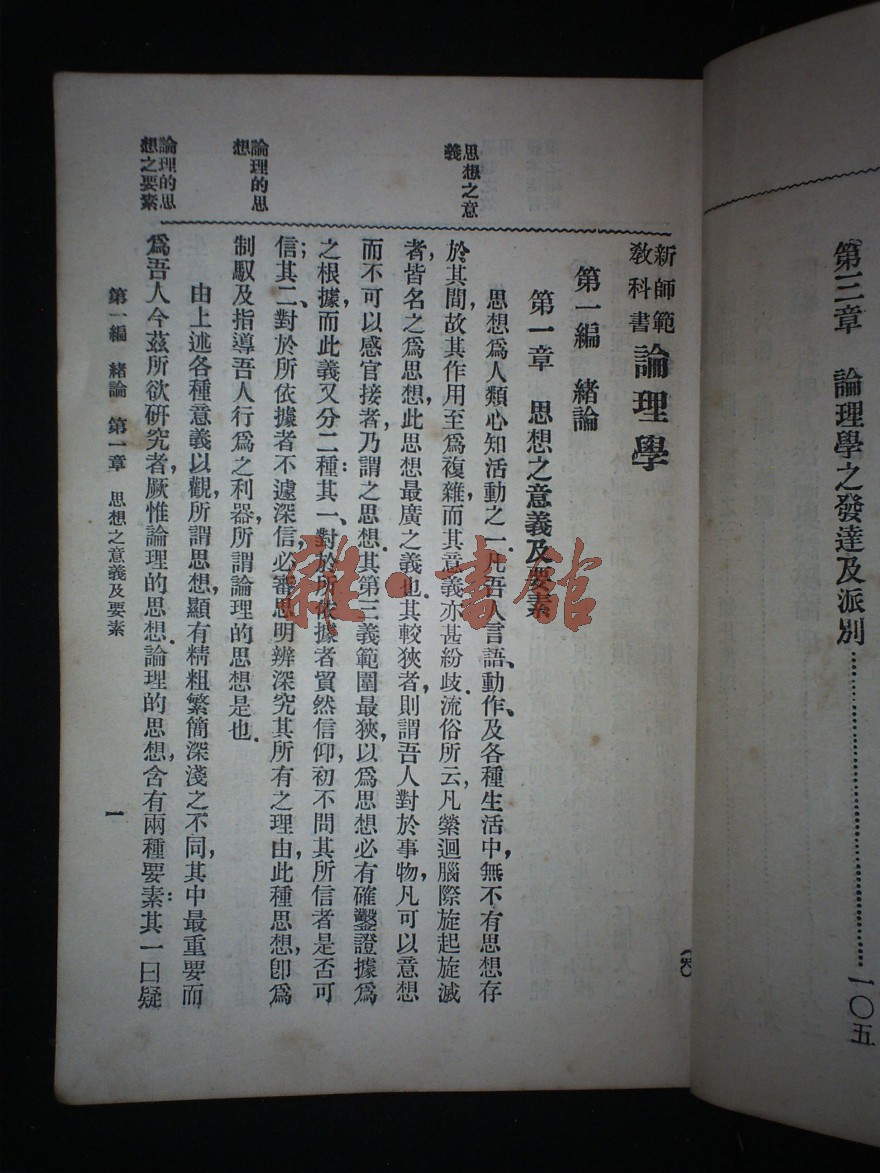 第三章　論理學之發達及派別……一〇五
新師範
教科書
論理學
第一編　緒論
第一章　思想之意義及要素
思想之意
義
思想爲人類心知活動之一凡吾人言語、動作、及各種生活中，無不有思想存
於其間，故其作用至爲複雜，而其意義亦甚紛歧．流俗所云，凡縈迴腦際旋起旋滅
者，皆名之爲思想，此思想最廣之義也．其較狹者，則謂吾人對於事物，凡可以意想
而不可以感官接者，乃謂之思想．其第三義範圍最狹，以爲思想必有確鑿證據爲
之根據，而此義又分二種：其一、對於所依據者貿然信仰，初不問其所信者是否可
信；其二、對於所依據者不遽深信，必審思明辨深究其所有之理由，此種思想，卽爲
論理的思
想
制馭及指導吾人行爲之利器，所謂論理的思想是也．
由上述各種意義以觀，所謂思想，顯有精粗繁簡深淺之不同，其中最重要而
論理的思
想之要素
爲吾人今茲所欲硏究者，厥惟論理的思想．論理的思想，含有兩種要素：其一曰疑
第一編　緒論　第一章　思想之意義及要素
一
雜·書館